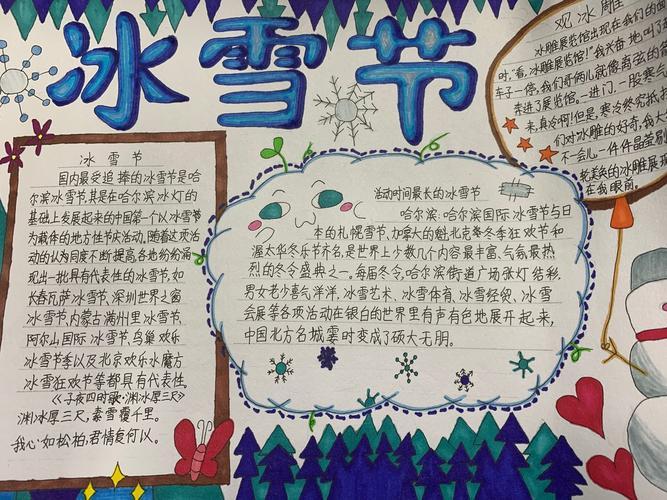 冰雪节
冰雪节
国内最受追捧的冰雪节是哈
尔滨冰雪节,其是在哈尔滨冰灯的
基础上发展起来的中国第一个以冰雪节
为载体的地方性节庆活动,随着这项活
动的认为同度不断提高各地纷纷涌
现出一批具有代表性的冰雪节,如
长春瓦萨冰雪节、深圳世界之窗
冰雪节、内蒙古满州里冰雪节、
阿尔山国际冰雪节、鸟巢欢乐
冰雪节季以及北京欢乐水魔方
冰雪狂欢节等都具有代表性。
《子夜四时歌·渊冰厚三尺》
渊冰厚三尺,素雪覆千里。
我心如松柏,君情复何似。
活动时间最长的冰雪节
哈尔滨:哈尔滨国际冰雪节与日
本的札幌雪节、加拿大的魁北克冬季狂欢节和
渥太华冬乐节齐名,是世界上少数几个内容最丰富、气氛最热
烈的冬令盛典之一,每届冬令,哈尔滨街道广场张灯结彩,
男女老少喜气洋洋,冰雪艺术、冰雪体育、冰雪经贸、冰雪
会展等各项活动在银白的世界里有声有色地展开起来,
中国北方名城霎时变成了硕大无朋。
观冰雕
冰雕展览馆出现在我们的
时,"看,冰雕展览馆!"我兴奋地叫
车子一停,我们哥俩儿就像离弦的
奔进了展览馆。一进门,一股寒
来,真冷啊!但是,寒冷终究抵
们对冰雕的好奇,我
不一会儿一件件晶莹
美的冰雕展
在我眼前。